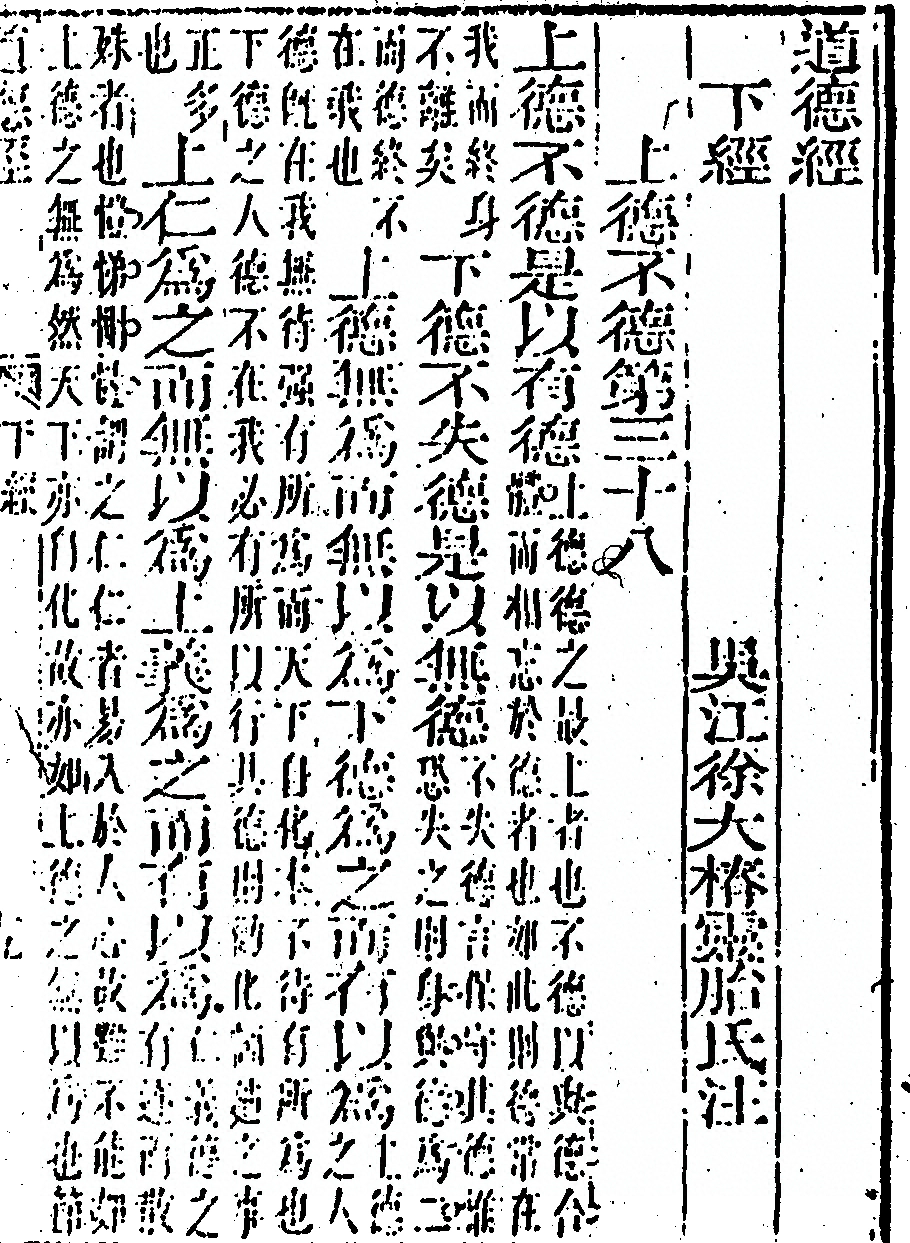 道德經
下經 吳江徐大椿靈胎氏注
上德不德第三十八
上德不德是以有德上德德之最上者也不德以與德合體而相忘於德者也如此則德常在
我而終身不離矣下德不失德是以無德不失德言保守其德唯恐失之則身與德爲二
而德終不在我也上德無爲而無以爲下德爲之而有以爲上德之人
德既在我無待强有所爲而天下自化本不待有所爲也下德之人德不在我必有所以行其德則化而之事
正多也上仁爲之而無以爲上義爲之而有以爲仁義德之有迹而散
殊者也愷悌惻怛謂之仁仁者易入於人心故雖不能如上德之無爲然天下亦自化故亦如上德之無以爲也節
道德經 下經